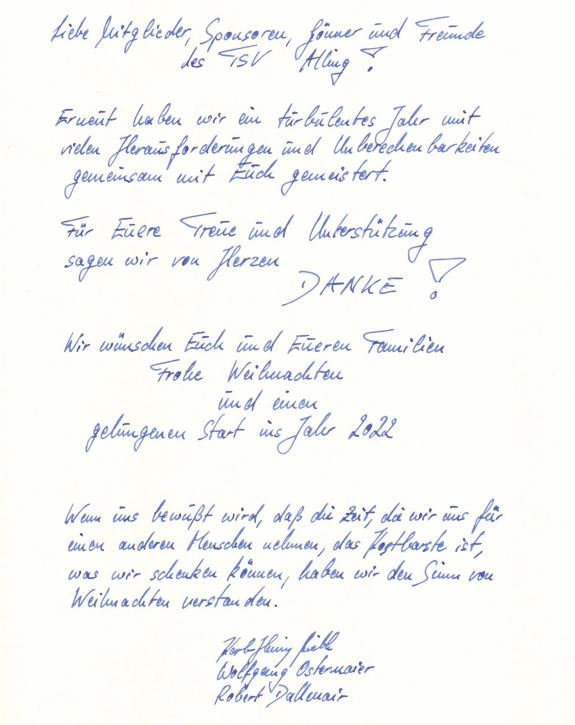 Liebe Mitglieder, Sponsoren, Gönner und Freunde
des TSV Alling !
Erneut haben wir ein turbulentes Jahr mit
vielen Herausforderungen und Unberechenbarkeiten
gemeinsam mit Euch gemeistert.
Für Euere Treue und Unterstützung
sagen wir von Herzen
DANKE !
Wir wünschen Euch und Eueren Familien
Frohe Weihnachten
und einen
gelungenen Start ins Jahr 2022
Wenn uns bewußt wird, daß die Zeit, die wir uns für
einen anderen Menschen nehmen, das Kostbarste ist,
was wir schenken können, haben wir den Sinn von
Weihnachten verstanden.
Wolfgang Ostermaier
Robert Dallmair